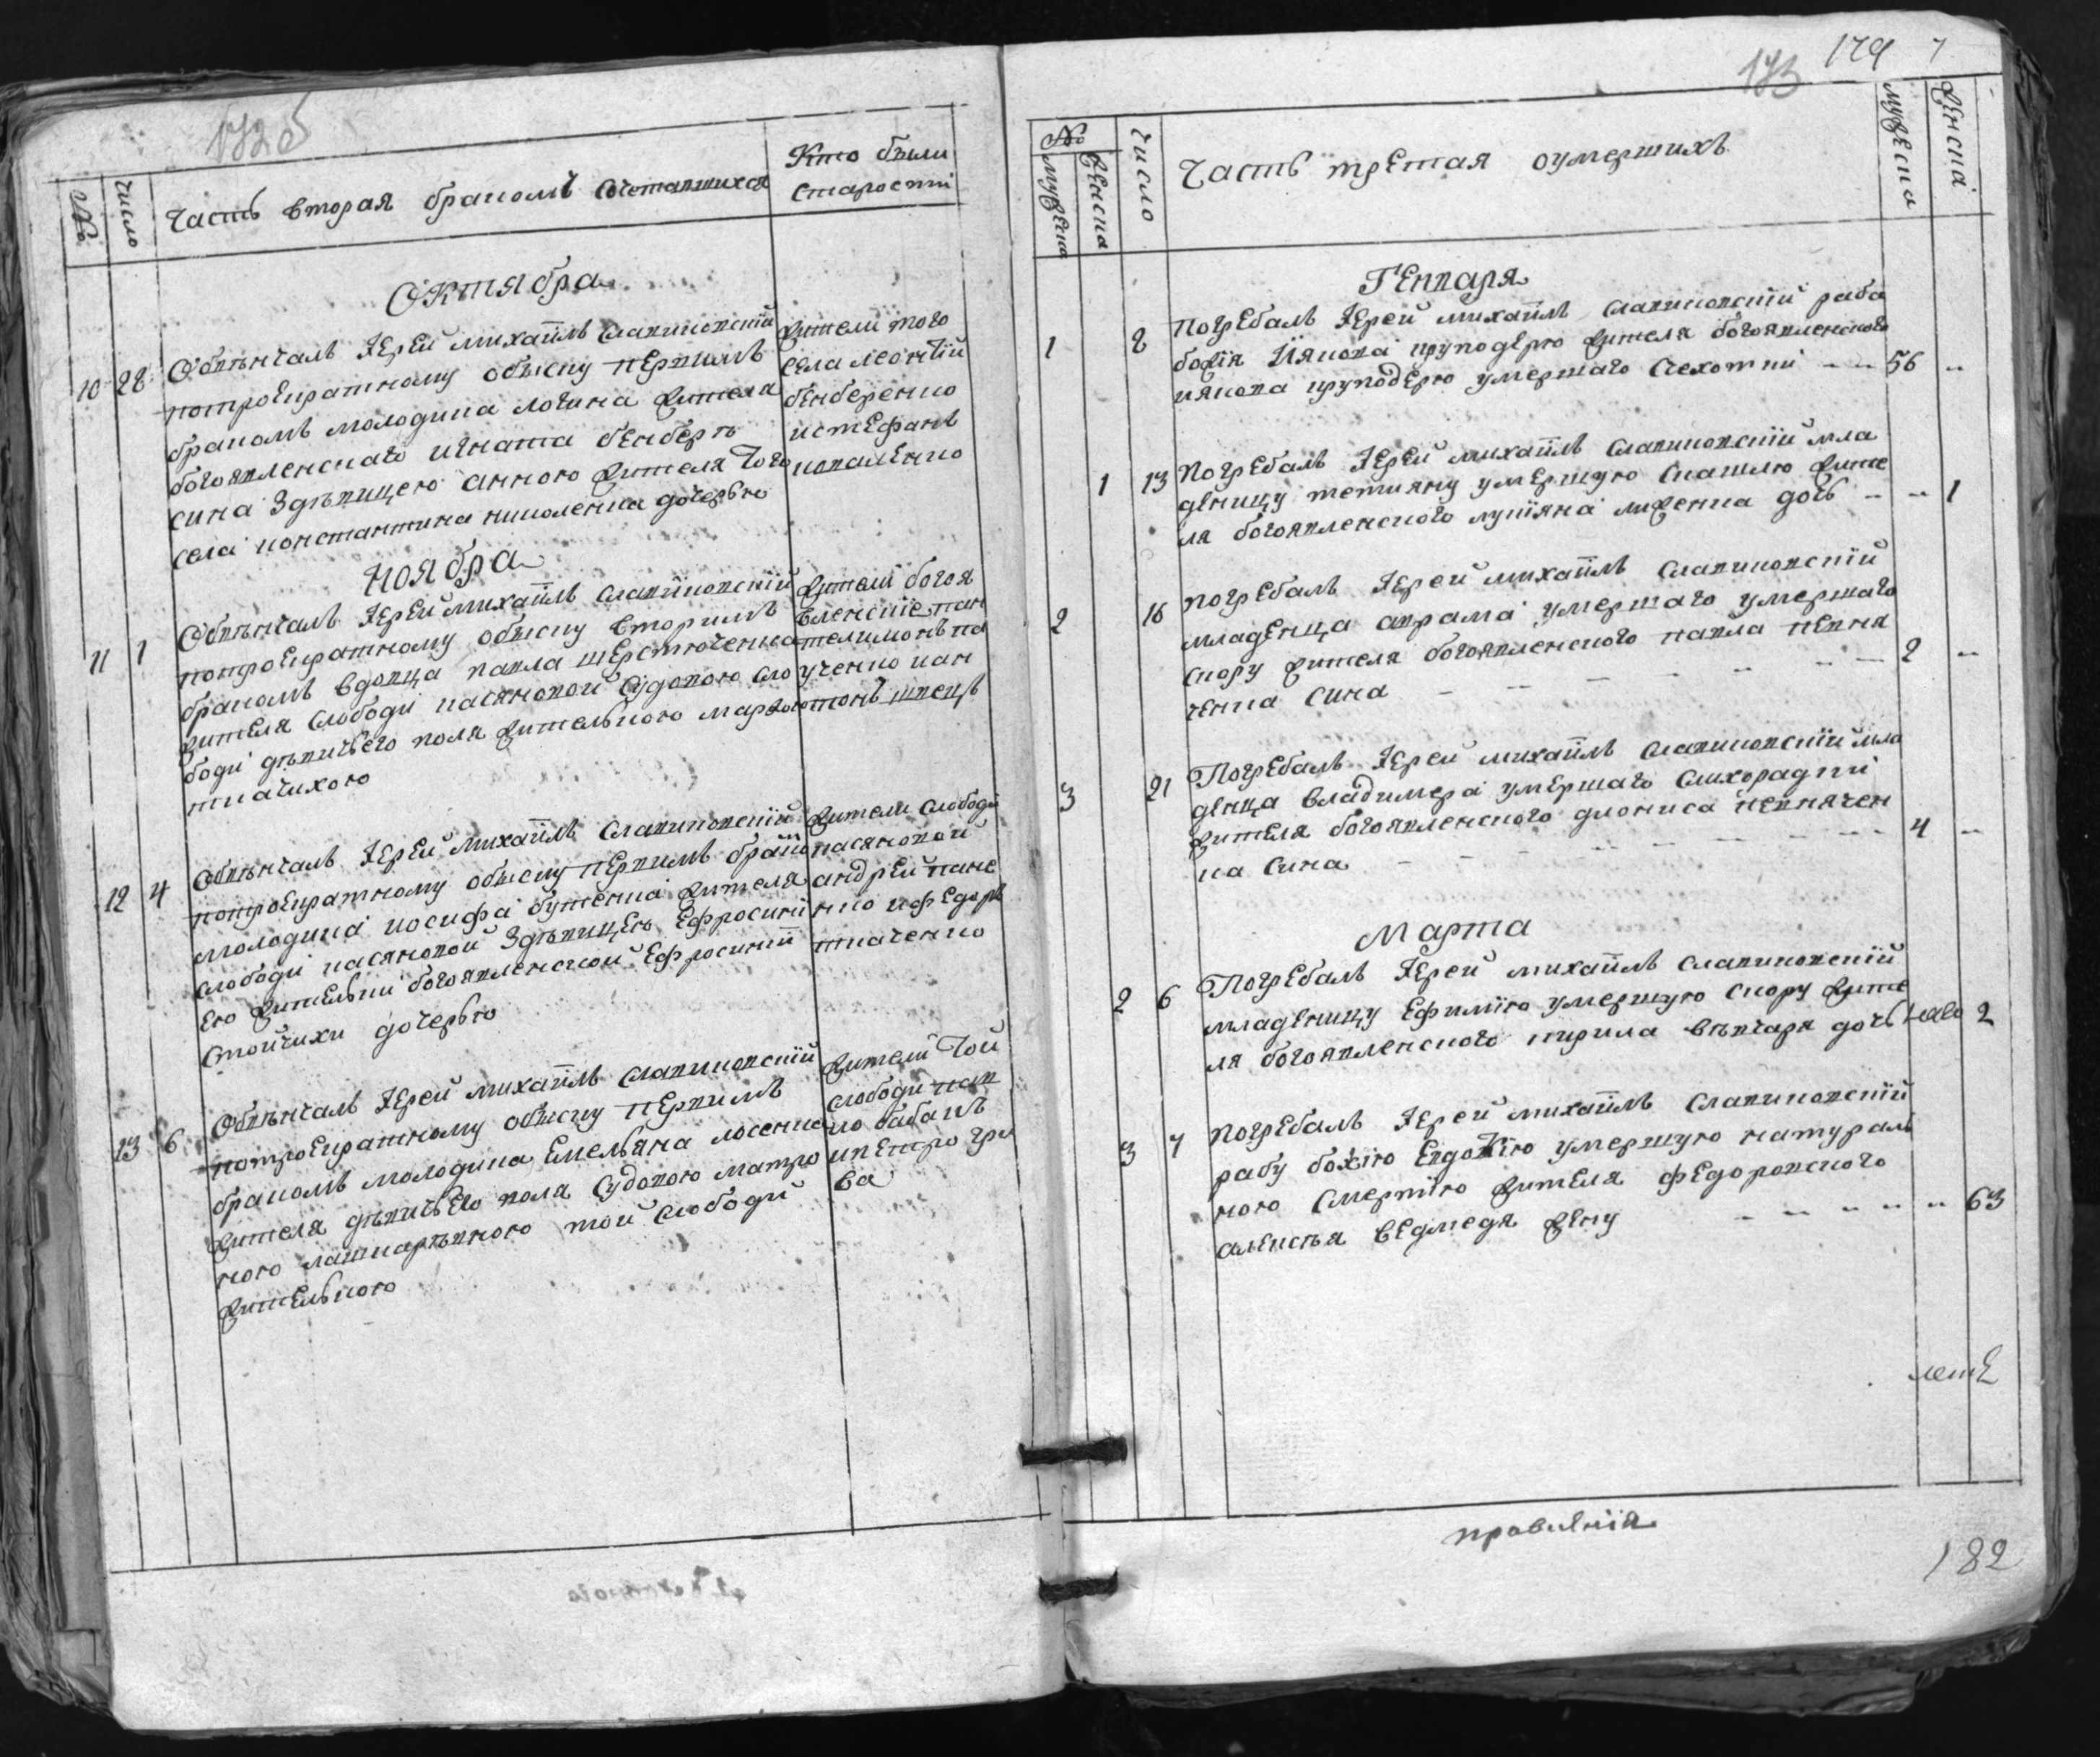 172б
№
число
Часть вторая бракомъ сочетавшихся
Кто были
старости
Октября
10 28 Обвѣнчалъ Іерей михаилъ славиновскій
потроекратному обыску первимъ
бракомъ молодика логина жителя
богоявленскаго игната бенберъ
сина здѣвицею анною жителя того
села константина николенка дочерью
жители того
села леонтій
бенберенко
истефанъ
коваленко
Ноября
11 1 Обвѣнчалъ Іерей михаилъ славиновскій
потроекратному обыску вторимъ
бракомъ вдовца павла шерстюченка
жителя слободи касяновой судовою сло
боди дѣвичьего поля жителького марфою
ткачихою
жители богоя
вленскіе пан
телимонъ
ученко иан
тонъ швецъ
12 4 Обвѣнчалъ Іерей михаилъ славиновскій
потроекратному обыску первимъ брако
молодика иосифа бутенка жителя
слободи касяновой здѣвицею ефросині
ею жителки богоявленской ефросиніи
стойчихи дочерью
жители слободи
касяновой
андрей
нко ифедоръ
ткаченко
13 6 Обвѣнчалъ Іерей михаилъ славиновскій
потроекратному обыску первимъ
бракомъ молодика емельяна лосенка
жителя дѣвичьего поля судовою матро
ною лашкарѣвною той слободи
жителького
жители той
слободи пав
ло бабакъ
ипетро гри
ва
173 179 7
№
мужеска
женска
число
Часть третая оумершихъ
мужеска
женска
Генваря
1 2 погребалъ Іерей михаилъ славиновскій раба
божія Іякова круподерю жителя богоявленского
иякова круподерю умершаго сухотки - - 56 -
1 13 погребалъ Іерей михаилъ славиновскій мла
деницу тетияну умершую скашлю жите
ля богоявленского лукіяна дочь - - 1
2 16 погребалъ Іерей михаилъ славиновскій
младенца аврама умершаго умершаго
скору жителя богоявленского павла певня
ченка сина - - - - - - 2 -
3 21 Погребалъ Іерей михаилъ славиновскій мла
денца владимера умершаго слихорадки
жителя богоявленского диониса певнячен
ка сина - - - - - - 4 -
Марта
2 6 Погребалъ Іерей михаилъ славиновскій
младеницу ефимію умершую скору жите
ля богоявленского кирила вѣвчаря дочь 2
3 7 погребалъ Іерей михаилъ славиновскій
рабу божію евдокію умершую натураль
ною смертію жителя федоровского
алексѣя ведмедя жену - - - - - 63
летъ
правленія
182